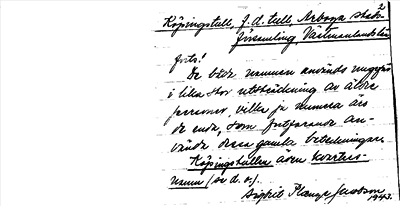 2
Köpingstull, f.d. tull, Arboga stads-
församling, Västmanlands län
Forts!
De båda namnen används ungefär
i lika stor utsträckning av äldre
personer, vilka ju numera äro
de enda, som fortfarande an-
vända dessa gamla beteckningar.
Köpingstullen även kvarters-
namn (se d. o.).
Jacobson
1943.